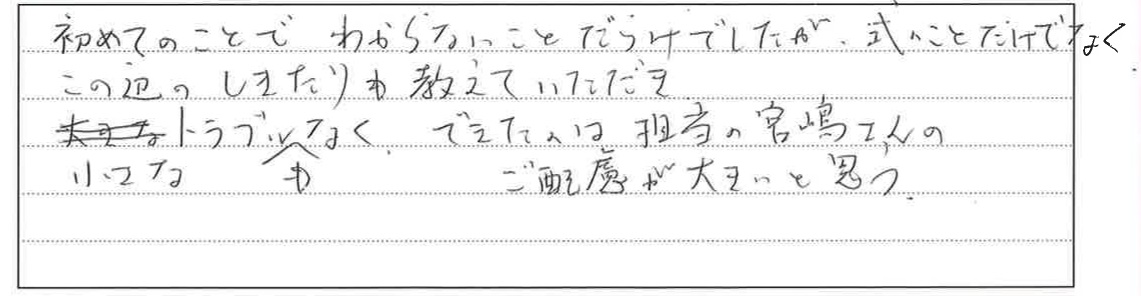 初めてのことで わからないことだらけでしたが、式のことだけでなく
この辺のしきたりも教えていただき
大きなトラブルなく、できたのは担当の宮嶋さんの
小さな も ご配慮が大きいと思う。